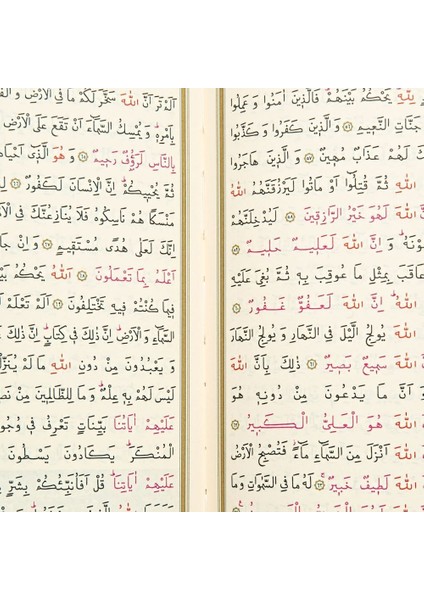 لِلّٰهِ يَحْكُمُ بَيْنَهُمْ فَالَّذِينَ اٰمَنُوا وَعَمِلُوا
جَنَّاتِ النَّعِيمِ ﴿٥٦﴾ وَالَّذِينَ كَفَرُوا وَكَذَّبُوا
لَهُمْ عَذَابٌ مُهِينٌ ﴿٥٧﴾ وَالَّذِينَ هَاجَرُوا
اللّٰهِ ثُمَّ قُتِلُوا اَوْ مَاتُوا لَيَرْزُقَنَّهُمُ اللّٰهُ
اللّٰهَ لَهُوَ خَيْرُ الرَّازِقِينَ ﴿٥٨﴾ لَيُدْخِلَنَّهُمْ
وَاِنَّ اللّٰهَ لَعَلِيمٌ حَلِيمٌ ﴿٥٩﴾
عَاقَبَ بِمِثْلِ مَا عُوقِبَ بِهِ ثُمَّ بُغِيَ عَلَيْهِ
اللّٰهُ اِنَّ اللّٰهَ لَعَفُوٌّ غَفُورٌ ﴿٦٠﴾
اللّٰهَ يُولِجُ الَّيْلَ فِي النَّهَارِ وَيُولِجُ النَّهَارَ
اللّٰهَ سَمِيعٌ بَصِيرٌ ﴿٦١﴾ ذٰلِكَ بِاَنَّ اللّٰهَ
وَاَنَّ مَا يَدْعُونَ مِنْ دُونِهِ هُوَ
اللّٰهَ هُوَ الْعَلِيُّ الْكَبِيرُ ﴿٦٢﴾
اللّٰهَ اَنْزَلَ مِنَ السَّمَاءِ مَاءً فَتُصْبِحُ الْاَرْضُ
اللّٰهَ لَطِيفٌ خَبِيرٌ ﴿٦٣﴾ لَهُ مَا فِي السَّمٰوَاتِ وَمَا
اَلَمْ تَرَ اَنَّ اللّٰهَ سَخَّرَ لَكُمْ مَا فِي الْاَرْضِ
بِاَمْرِهِ وَيُمْسِكُ السَّمَاءَ اَنْ تَقَعَ عَلَى الْاَرْضِ
بِالنَّاسِ لَرَؤُفٌ رَحِيمٌ ﴿٦٥﴾ وَهُوَ الَّذِي اَحْيَا
ثُمَّ يُحْيِيكُمْ اِنَّ الْاِنْسَانَ لَكَفُورٌ ﴿٦٦﴾
مَنْسَكًا هُمْ نَاسِكُوهُ فَلَا يُنَازِعُنَّكَ فِي الْاَ
اِنَّكَ لَعَلٰى هُدًى مُسْتَقِيمٍ ﴿٦٧﴾ وَاِنْ جَا
اَعْلَمُ بِمَا تَعْمَلُونَ ﴿٦٨﴾ اَللّٰهُ يَحْكُمُ بَ
فِيمَا كُنْتُمْ فِيهِ تَخْتَلِفُونَ ﴿٦٩﴾ اَلَمْ تَعْلَمْ اَ
السَّمَاءِ وَالْاَرْضِ اِنَّ ذٰلِكَ فِي كِتَابٍ اِنَّ ذٰلِكَ
وَيَعْبُدُونَ مِنْ دُونِ اللّٰهِ مَا لَمْ يُنَزِّلْ
لَيْسَ لَهُمْ بِهِ عِلْمٌ وَمَا لِلظَّالِمِينَ مِنْ نَصِ
عَلَيْهِمْ اٰيَاتُنَا بَيِّنَاتٍ تَعْرِفُ فِي وُجُو
الْمُنْكَرَ يَكَادُونَ يَسْطُونَ
عَلَيْهِمْ اٰيَاتِنَا قُلْ اَفَاُنَبِّئُكُمْ بِشَرٍّ